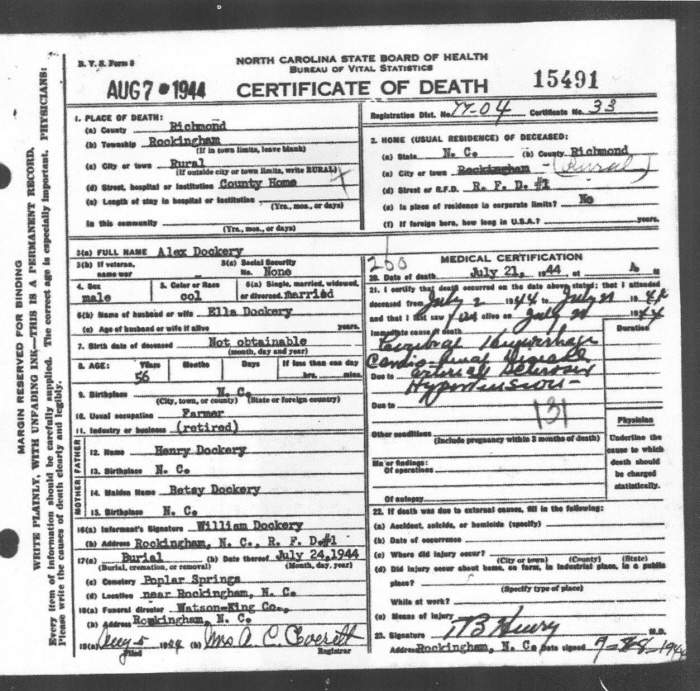 B. V. S. Form 8
NORTH CAROLINA STATE BOARD OF HEALTH
BUREAU OF VITAL STATISTICS
AUG 7 1944
CERTIFICATE OF DEATH
15491
Registration Dist. No. 77-04 Certificate No. 33
MARGIN RESERVED FOR BINDING
WRITE PLAINLY, WITH UNFADING INK—THIS IS A PERMANENT RECORD.
Every item of information should be carefully supplied. The correct age is especially important. PHYSICIANS:
Please write the causes of death clearly and legibly.
1. PLACE OF DEATH:
(a) County Richmond
(b) Township Rockingham
(If in town limits, leave blank)
(c) City or town Rural
(If outside city or town limits, write RURAL)
(d) Street, hospital or institution County Home
(e) Length of stay in hospital or institution
(Yrs., mos., or days)
In this community
(Yrs., mos., or days)
2. HOME (USUAL RESIDENCE) OF DECEASED:
(a) State N. C. (b) County Richmond
(c) City or town Rockingham (Rural)
(d) Street or R.F.D. R. F. D. #1
(e) Is place of residence in corporate limits? No
(f) If foreign born, how long in U.S.A.? years.
3(a) FULL NAME Alex Dockery
3(b) If veteran, name war
3(c) Social Security No. None
4. Sex male
5. Color or Race col
6(a) Single, married, widowed, or divorced. married
6(b) Name of husband or wife Ella Dockery
(c) Age of husband or wife if alive years.
7. Birth date of deceased Not obtainable
(month, day and year)
8. AGE: Years Months Days If less than one day
56 hrs. mins.
9. Birthplace N. C.
(City, town, or county) (State or foreign country)
10. Usual occupation Farmer
11. Industry or business (retired)
FATHER
12. Name Henry Dockery
13. Birthplace N. C.
MOTHER
14. Maiden Name Betsy Dockery
15. Birthplace N. C.
16(a) Informant's Signature William Dockery
(b) Address Rockingham, N. C., R. F. D. #1
17(a) Burial (b) Date thereof July 24, 1944
(Burial, cremation, or removal) (Month, day, year)
(c) Cemetery Poplar Springs
(d) Location near Rockingham, N. C.
18(a) Funeral director Watson-King Co.,
(b) Address Rockingham, N. C.
19(a) Aug 5 1944 (b) Mrs A. C. Everett
Filed Registrar
MEDICAL CERTIFICATION
20. Date of death July 21, 1944, at M
21. I certify that death occurred on the date above stated; that I attended
deceased from July 2 1944 to July 21 1944
and that I last saw alive on July 21 1944
Immediate cause of death
Duration
Cerebral Hemorrhage
Cardio-renal Disease
Due to Arterial Sclerosis
Hypertension-
Due to
131
Other conditions
(Include pregnancy within 3 months of death)
Major findings:
Of operations
Of autopsy
Physician
Underline the cause to which death should be charged statistically.
22. If death was due to external causes, fill in the following:
(a) Accident, suicide, or homicide (specify)
(b) Date of occurrence
(c) Where did injury occur?
(City or town) (County) (State)
(d) Did injury occur about home, on farm, in industrial place, in a public
place?
(Specify type of place)
While at work?
(e) Means of injury
23. Signature M.D.
Address Rockingham, N. C. Date signed